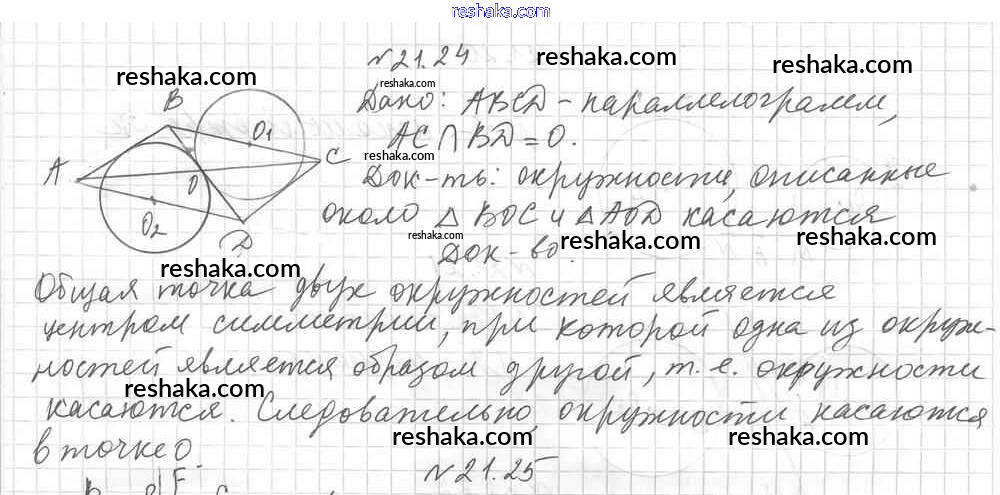 reshaka.com
№21.24
reshaka.com
reshaka.com
reshaka.com
reshaka.com
Дано: ABCD - параллелограмм,
AC ∩ BD = O.
reshaka.com
Док-ть: окружности, описанные
около △ BOC и △ AOD касаются
reshaka.com
reshaka.com
Док-во.
B
O1
A
C
O
O2
D
reshaka.com
Общая точка двух окружностей является
центром симметрии, при которой одна из окруж-
reshaka.com
ностей является образом другой, т. е. окружности
reshaka.com
reshaka.com
касаются. Следовательно, окружности касаются
в точке O.
reshaka.com
reshaka.com
№21.25
B
F
C